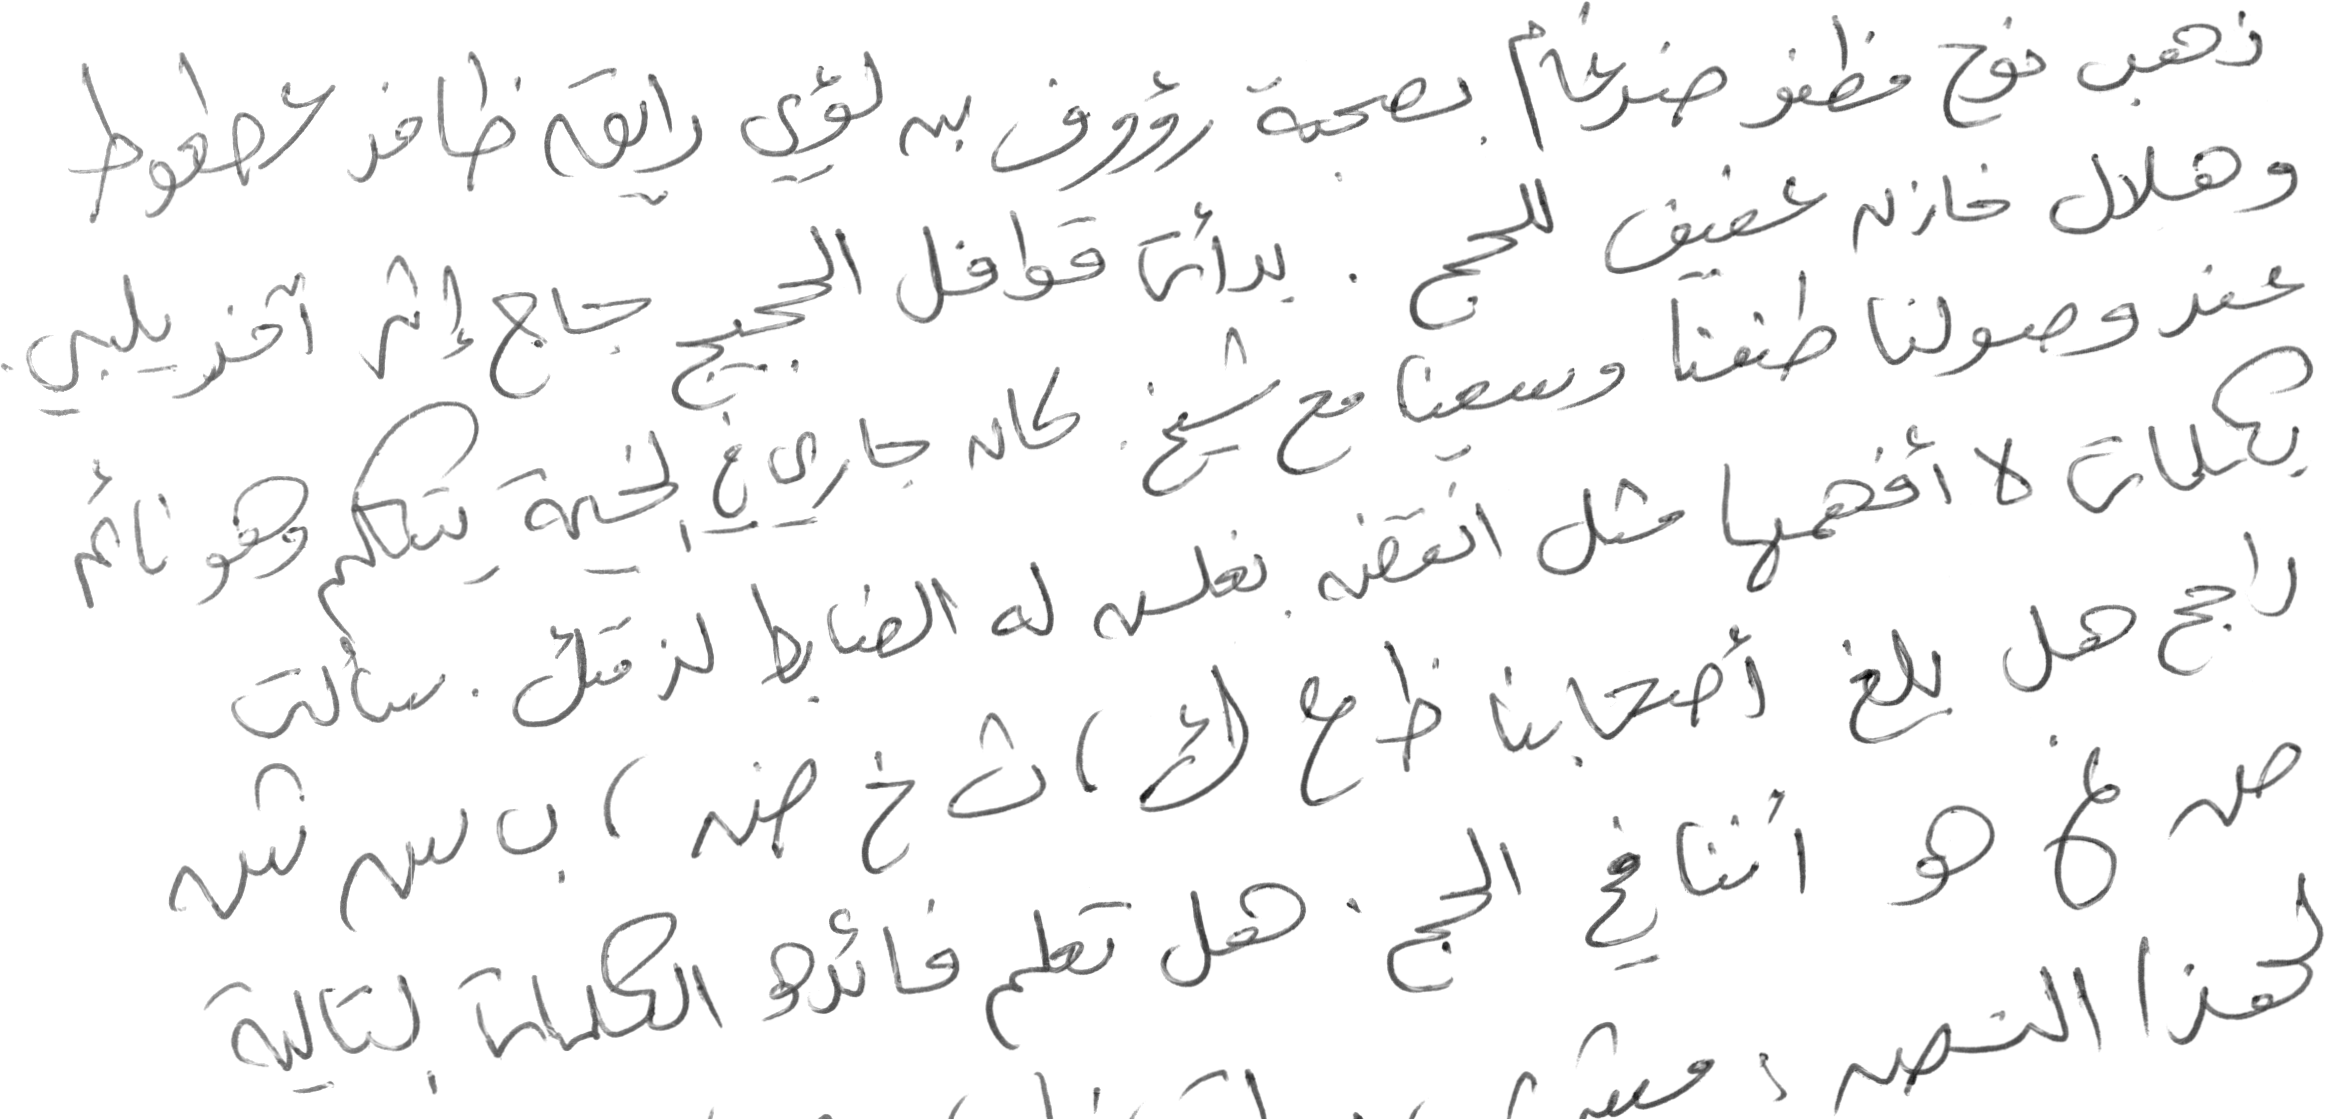 ذهب نوح مظفر ضرغام بصحبة رؤوف بن لؤي رايق ظافر عطعوط
وهلال خازن عفيف للحج . بدأت قوافل الحجيج حاج إثر آخر يلبي .
عند وصولنا طفنا وسعينا مع شيخ . كان جاري في الخيمة يتكلم وهو نائم
بكلمات لا أفهمها مثل انقض بغلس له الضابط لز قتل . سألت
راجح هل بلغ أصحابنا ظ ع ( ئ ) ث خ ض ) ب س ش
ص ط هو أننا في الحج . هل تعلم فائدة الكلمات التالية
لهذا النص :